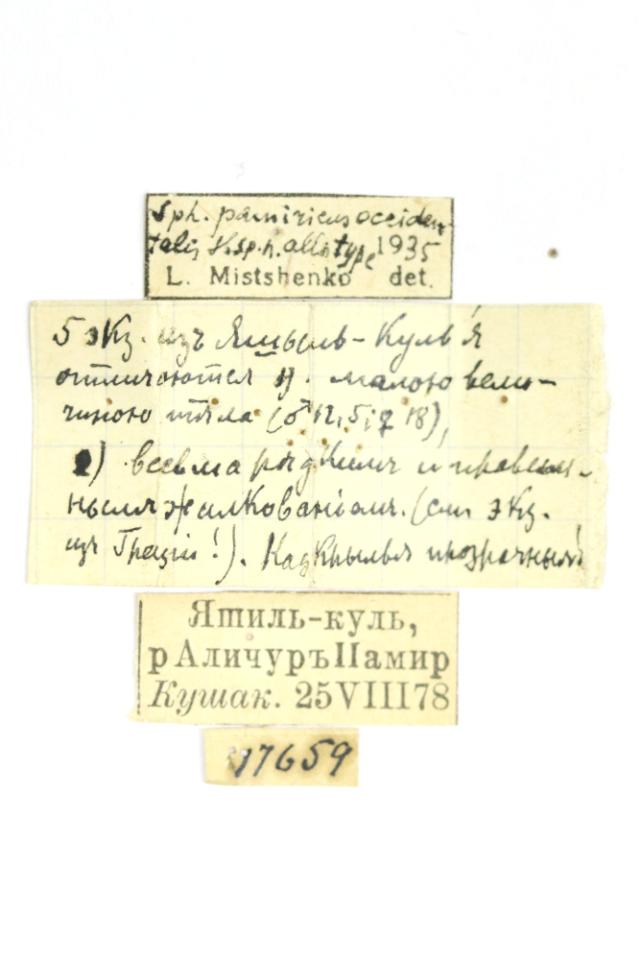 Sph. pamiricus occiden-
talis s.sp.n. allotype 1935
L. Mistshenko det.
5 экз. изъ Яшыль-Куль'я
отличаются 1). малою вели-
чиною тѣла (♂ 12,5; ♀ 18),
2) весьма рѣдкимъ и правиль-
нымъ жилкованіемъ. (см экз.
изъ Греціи!). Надкрылья прозрачныя!
Яшиль-куль,
р Аличуръ Памир
Кушак. 25VIII78
17659